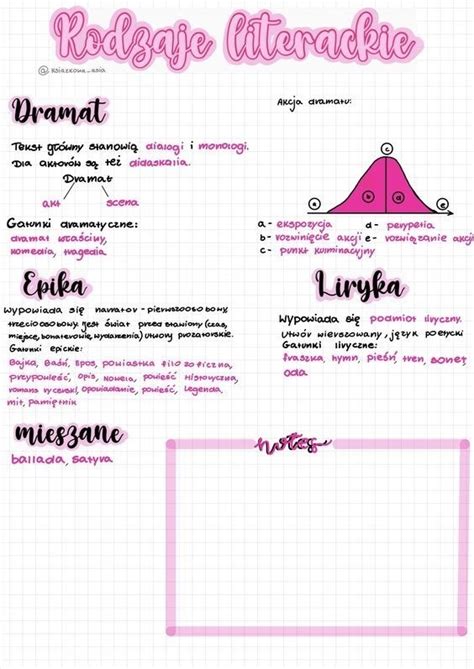 Rodzaje literackie
@książkowa_asia
Dramat
Tekst główny stanowią dialogi i monologi.
Dla aktorów są też didaskalia.
Dramat
akt scena
Gatunki dramatyczne:
dramat właściwy,
komedia, tragedia
Akcja dramatu:
a b c d e
a - ekspozycja
d - perypetia
b - rozwinięcie akcji
e - rozwiązanie akcji
c - punkt kulminacyjny
Epika
wypowiada się narrator - pierwszoosobowy,
trzecioosobowy. Jest świat przedstawiony (czas,
miejsce, bohaterowie, wydarzenia) utwory
Gatunki epickie:
Bajka, Baśń, Epos, powiastka filozoficzna,
przypowieść, opis, nowela, powieść historyczna,
romans rycerski, opowiadanie, powieść, legenda,
mit, pamiętnik
Liryka
Wypowiada się podmiot liryczny.
Utwór wierszowany, język poetycki
Gatunki liryczne:
fraszka, hymn, pieśń, tren, sonet,
oda
mieszane
ballada, satyra
notes